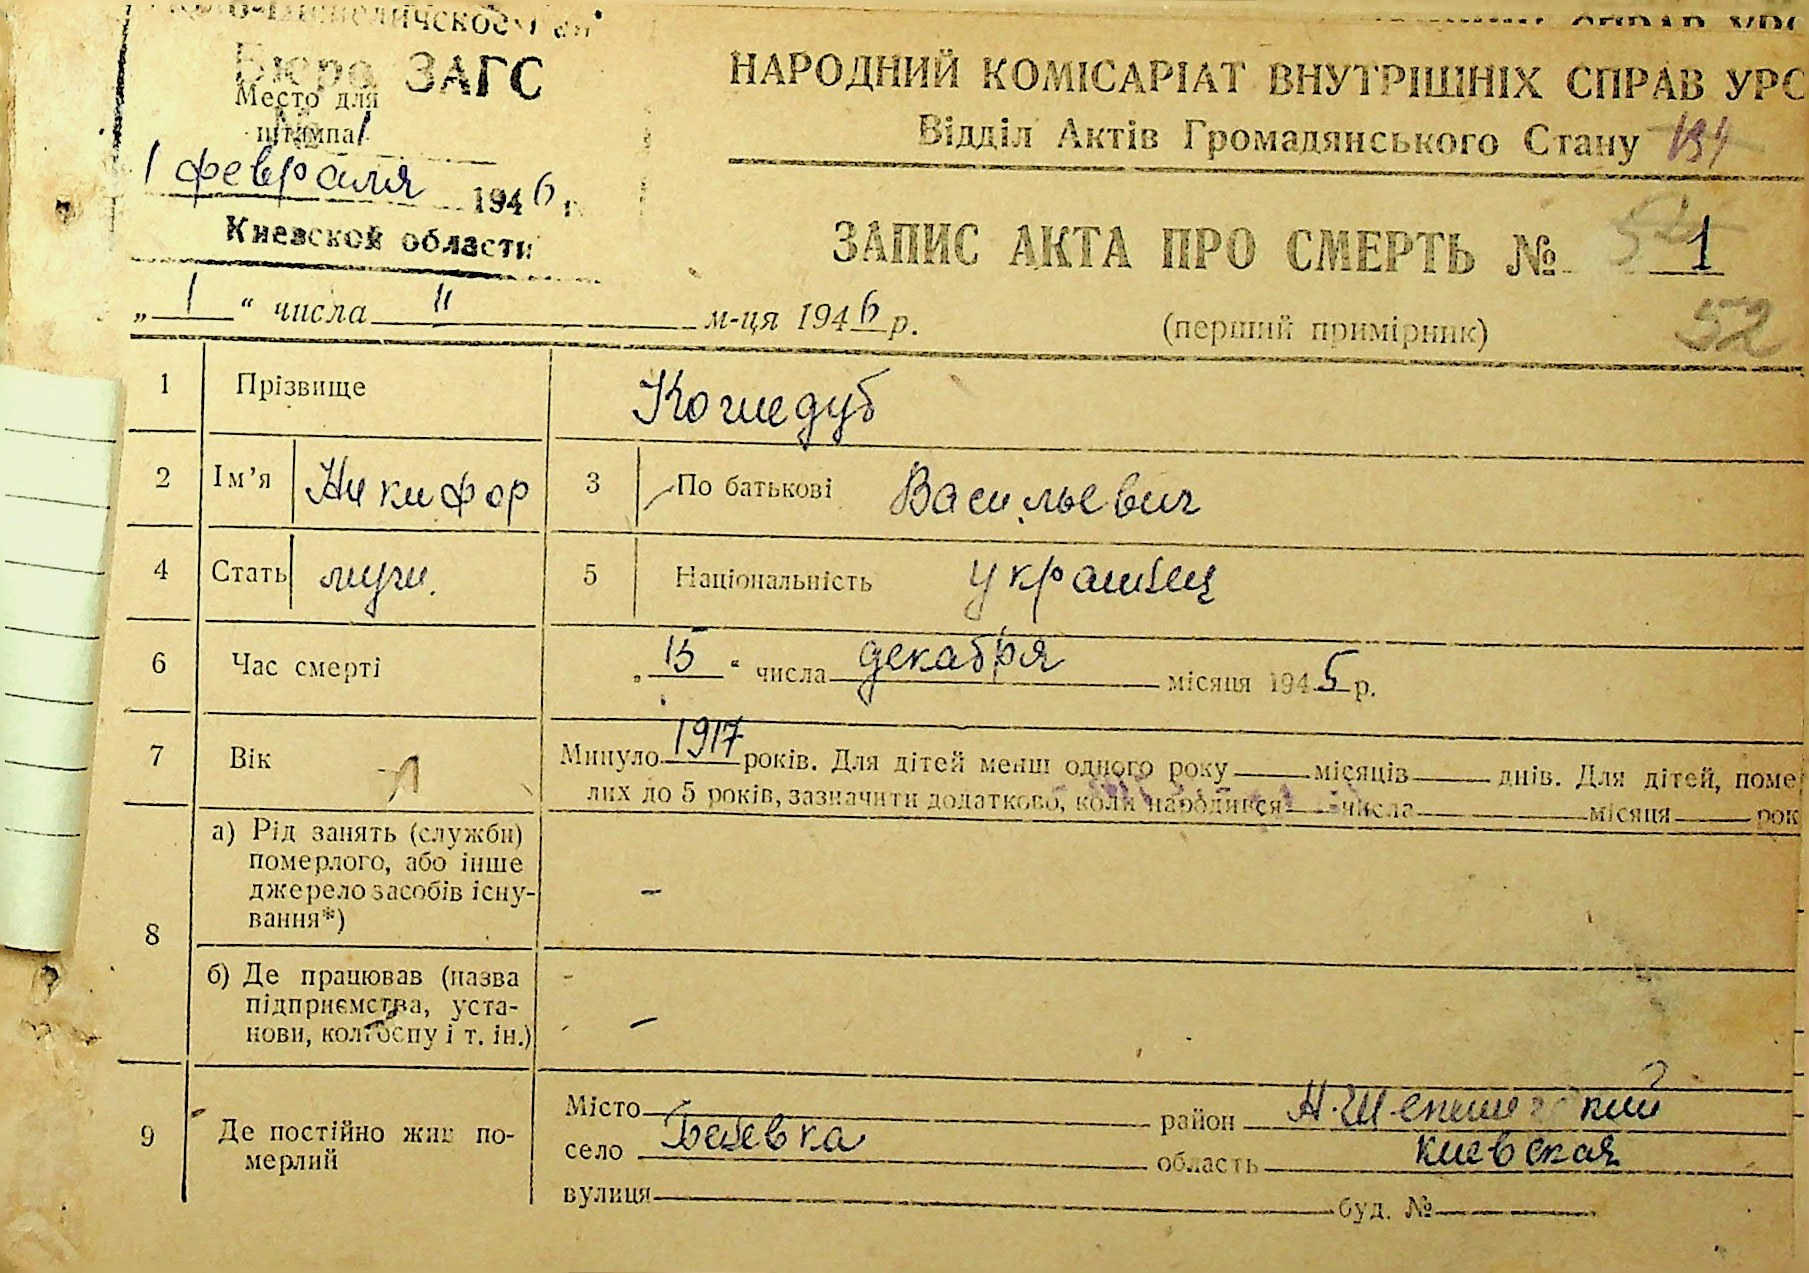 Бюро ЗАГС
Место для
штампа
1 февраля 1946 г.
Киевской области
НАРОДНИЙ КОМІСАРІАТ ВНУТРІШНІХ СПРАВ УРС
Відділ Актів Громадянського Стану 194
ЗАПИС АКТА ПРО СМЕРТЬ № 1
„ 1 “ числа II м-ця 1946 р.
(перший примірник) 52
1 Прізвище Кошедуб
2 Ім’я Никифор 3 По батькові Васильевич
4 Стать муж. 5 Національність украинец
6 Час смерті „ 15 “ числа декабря місяця 1945 р.
7 Вік Минуло 1917 років. Для дітей менш одного року місяців днів. Для дітей, поме
лих до 5 років, зазначити додатково, коли народився числа місяця рок
8 а) Рід занять (служби)
померлого, або інше
джерело засобів існу-
вання*)
–
б) Де працював (назва
підприємства, уста-
нови, колгоспу і т. ін.)
–
9 Де постійно жив по-
мерлий
Місто район
село область Киевская
вулиця буд. №